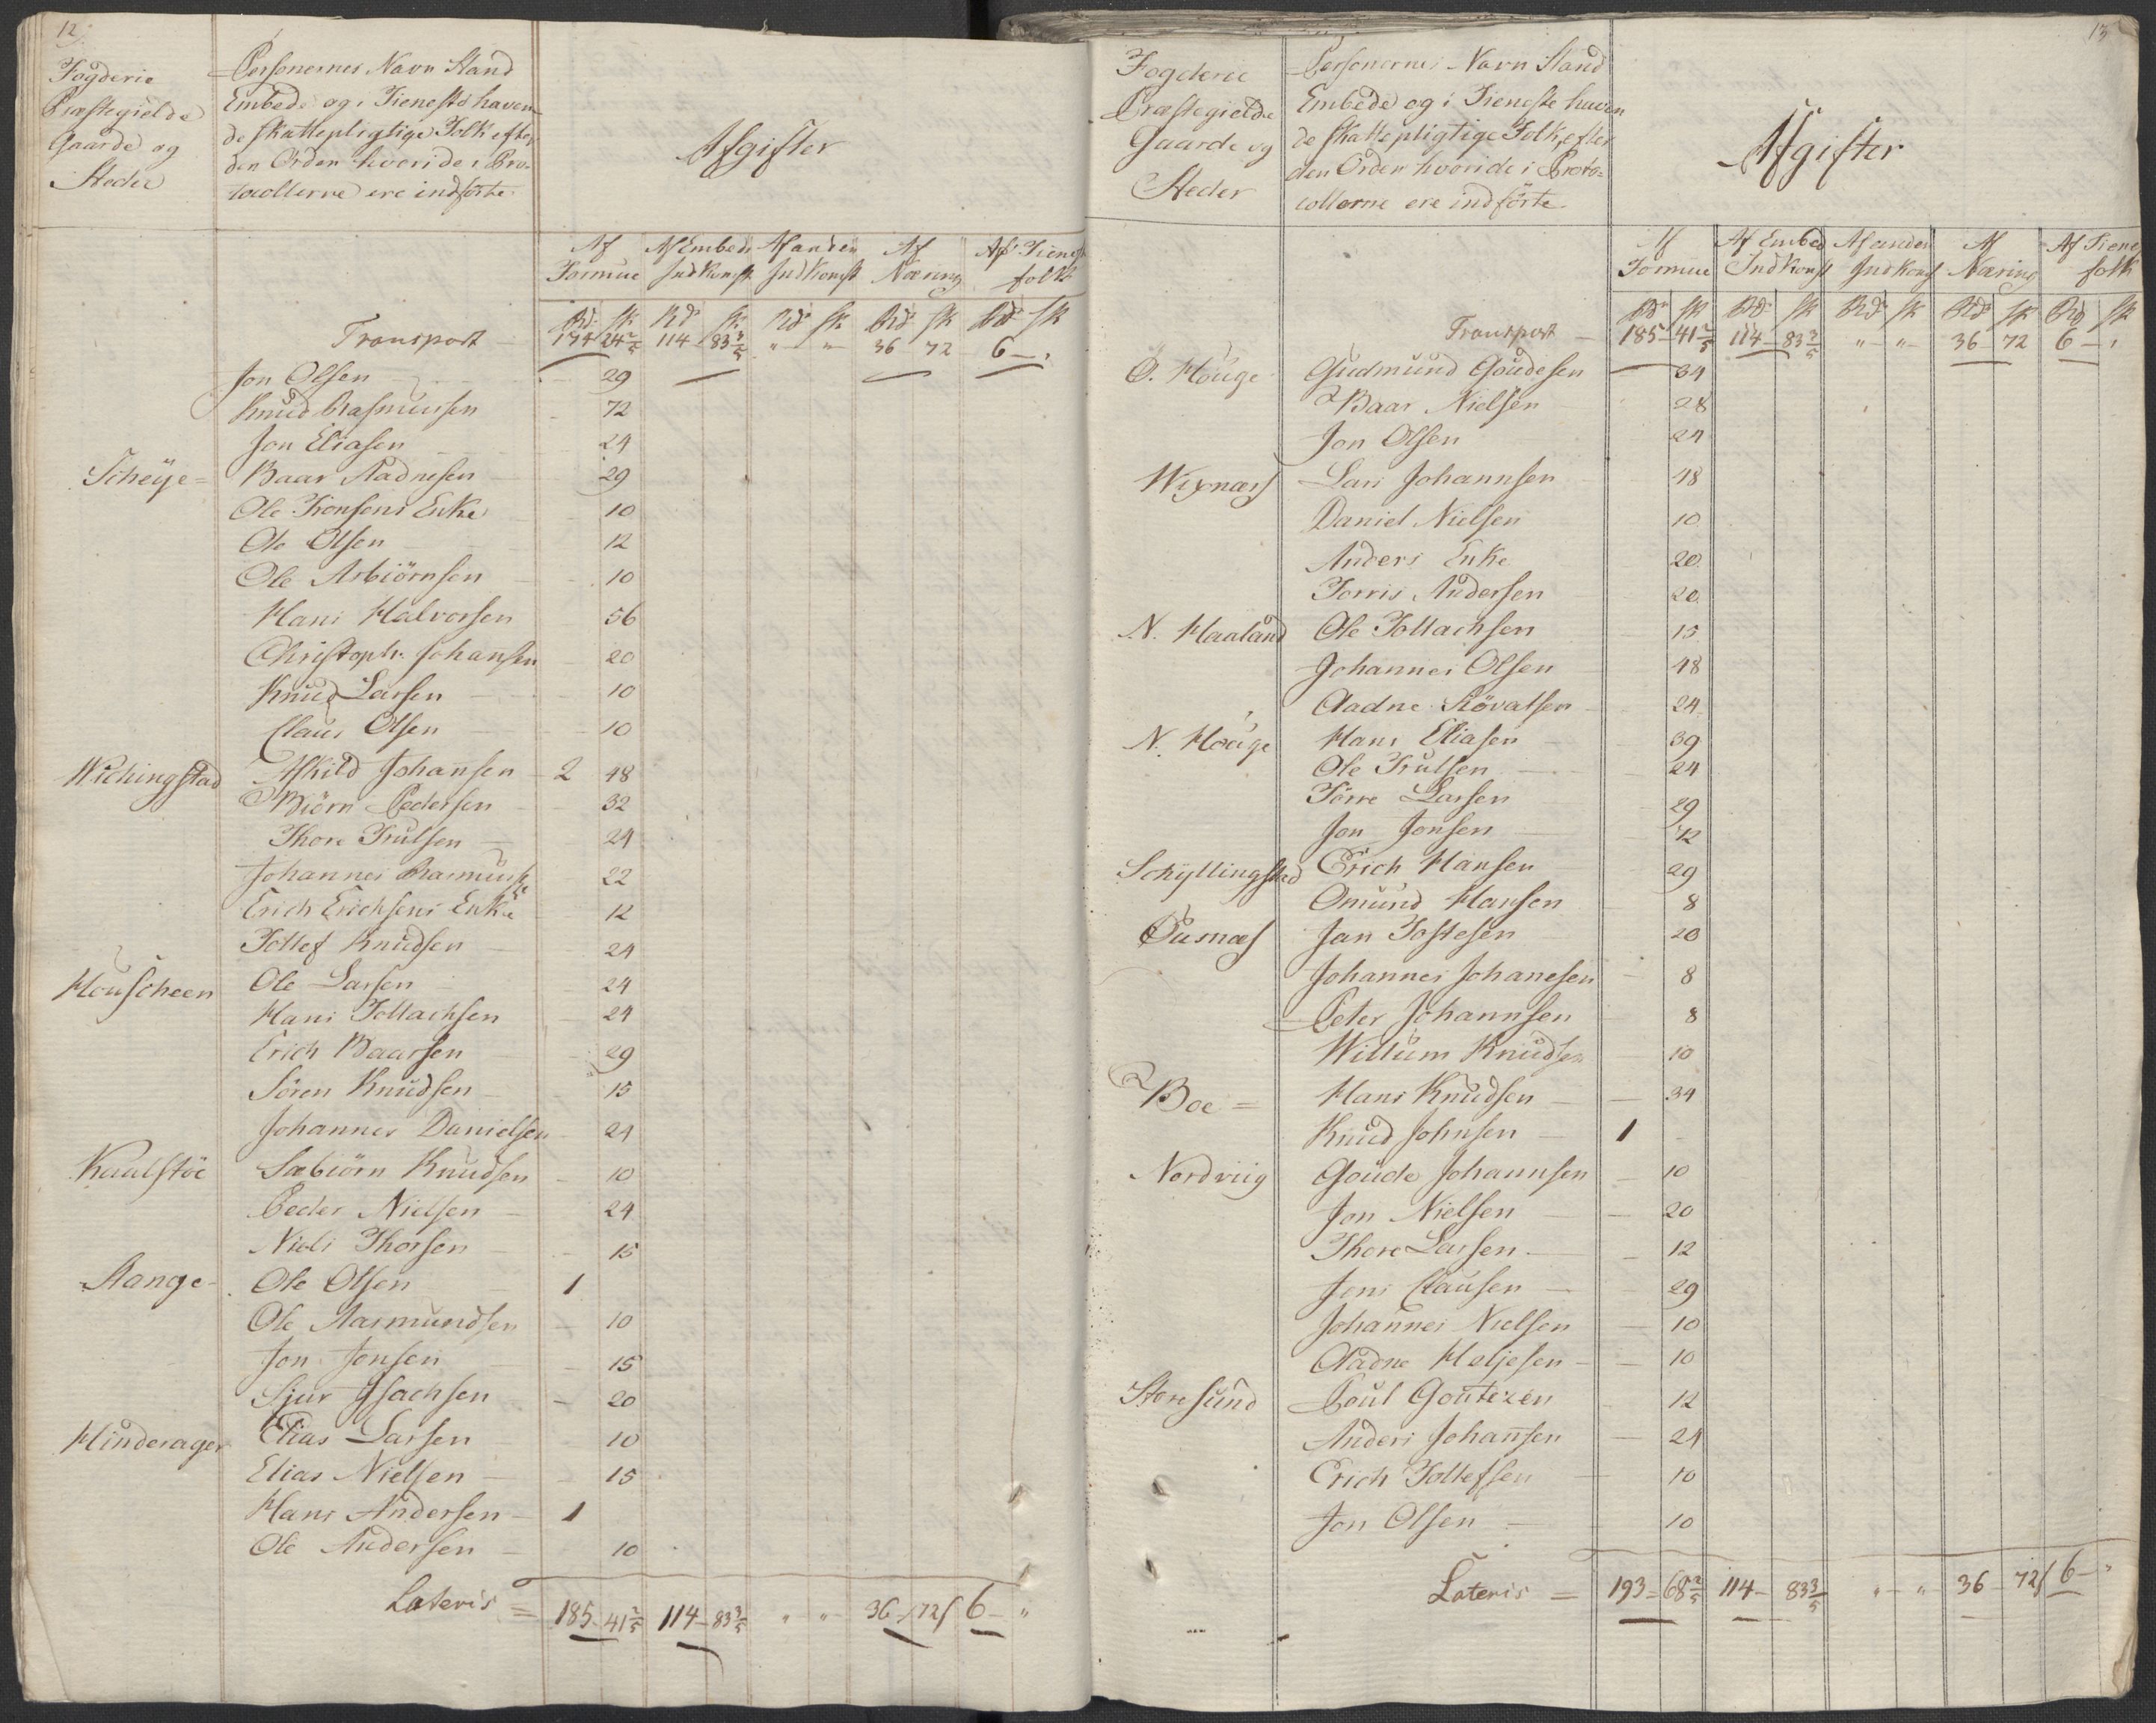 12
Fogderie
Præstegielde
Gaarde og
Steder
Personernes Navn Stand
Embede og i Tieneste haven
de skattepligtige Folk efter
den Orden hvori de i Pro-
tocollerne ere indførte
Afgifter
Af Formue Af Embeds Indkomst Af anden Indkomst Af Næring Af Tieneste folk
Rd. sk Rd. sk Rd. sk Rd. sk Rd. sk
Transport 174 24 2/5 114 83 3/5 " " 36 72 6 "
Jon Olsen 29
Knud Rasmussen 72
Jon Eliasen 24
Scheije = Baar Aadnesen 29
Ole Ivensens Enke 10
Ole Olsen 12
Ole Asbiørnsen 10
Hans Halvorsen 56
Christoph. Johansen 20
Knud Larsen 10
Claus Olsen 10
Wichingstad Askild Johansen 2 48
Biørn Pedersen 32
Thore Trulsen 24
Johannes Rasmusse 22
Erich Erichsens Enke 12
Tollef Knudsen 24
Houscheen Ole Larsen 24
Hans Tollachsen 24
Erich Baarsen 29
Sören Knudsen 15
Johannes Danielsen 24
Kaalstöe Sæbiörn Knudsen 10
Peder Nielsen 24
Niels Thorsen 15
Stange Ole Olsen 1
Ole Aasmundsen 10
Jon Jonsen 15
Sjur Isachsen 20
Hinderager Elias Larsen 10
Elias Nielsen 15
Hans Andersen 1
Ole Andersen 10
Lateris = 185 41 2/5 114 83 3/5 " " 36 72 6 "
13
Fogderie
Præstegielde
Gaarde og
Steder
Personernes Navn Stand
Embede og i Tieneste haven
de skattepligtige Folk, efter
den Orden hvori de i Proto=
collerne ere indförte
Afgifter
Af Formue Af Embed Indkomst Af anden Indkomst Af Næring Af Tiene folk
Rd. sk Rd. sk Rd. sk Rd. sk Rd sk
Transport 185 41 2/5 114 83 3/5 " " 36 72 6 "
Ö. Houge Gudmund Goudesen 34
Baar Nielsen 28
Jon Olsen 24
Wixnæss Lars Johannsen 48
Daniel Nielsen 10
Anders Enke 20
Torris Andersen 20
N. Haaland Ole Tollachsen 15
Johannes Olsen 48
Aadne Növalsen 24
N. Houge Hans Eliasen 39
Ole Trulsen 24
Törre Larsen 29
Jon Jonsen 12
Schyllingstad Erich Hansen 29
Omund Hansen 8
Jan Tostesen 20
Johannes Johanesen 8
Peter Johannsen 8
Willum Knudsen 10
Boe = Hans Knudsen 34
Knud Johnsen 1
Nordviig Goude Johannsen 10
Jon Nielsen 20
Thore Larsen 12
Jens Clausen 29
Johannes Nielsen 10
Aadne Heljesen 10
Storesund Poul Goutezen 12
Anders Johansen 24
Erich Tollefsen 10
Jon Olsen 10
Lateris = 193 68 2/5 114 83 3/5 " " 36 72 6 "